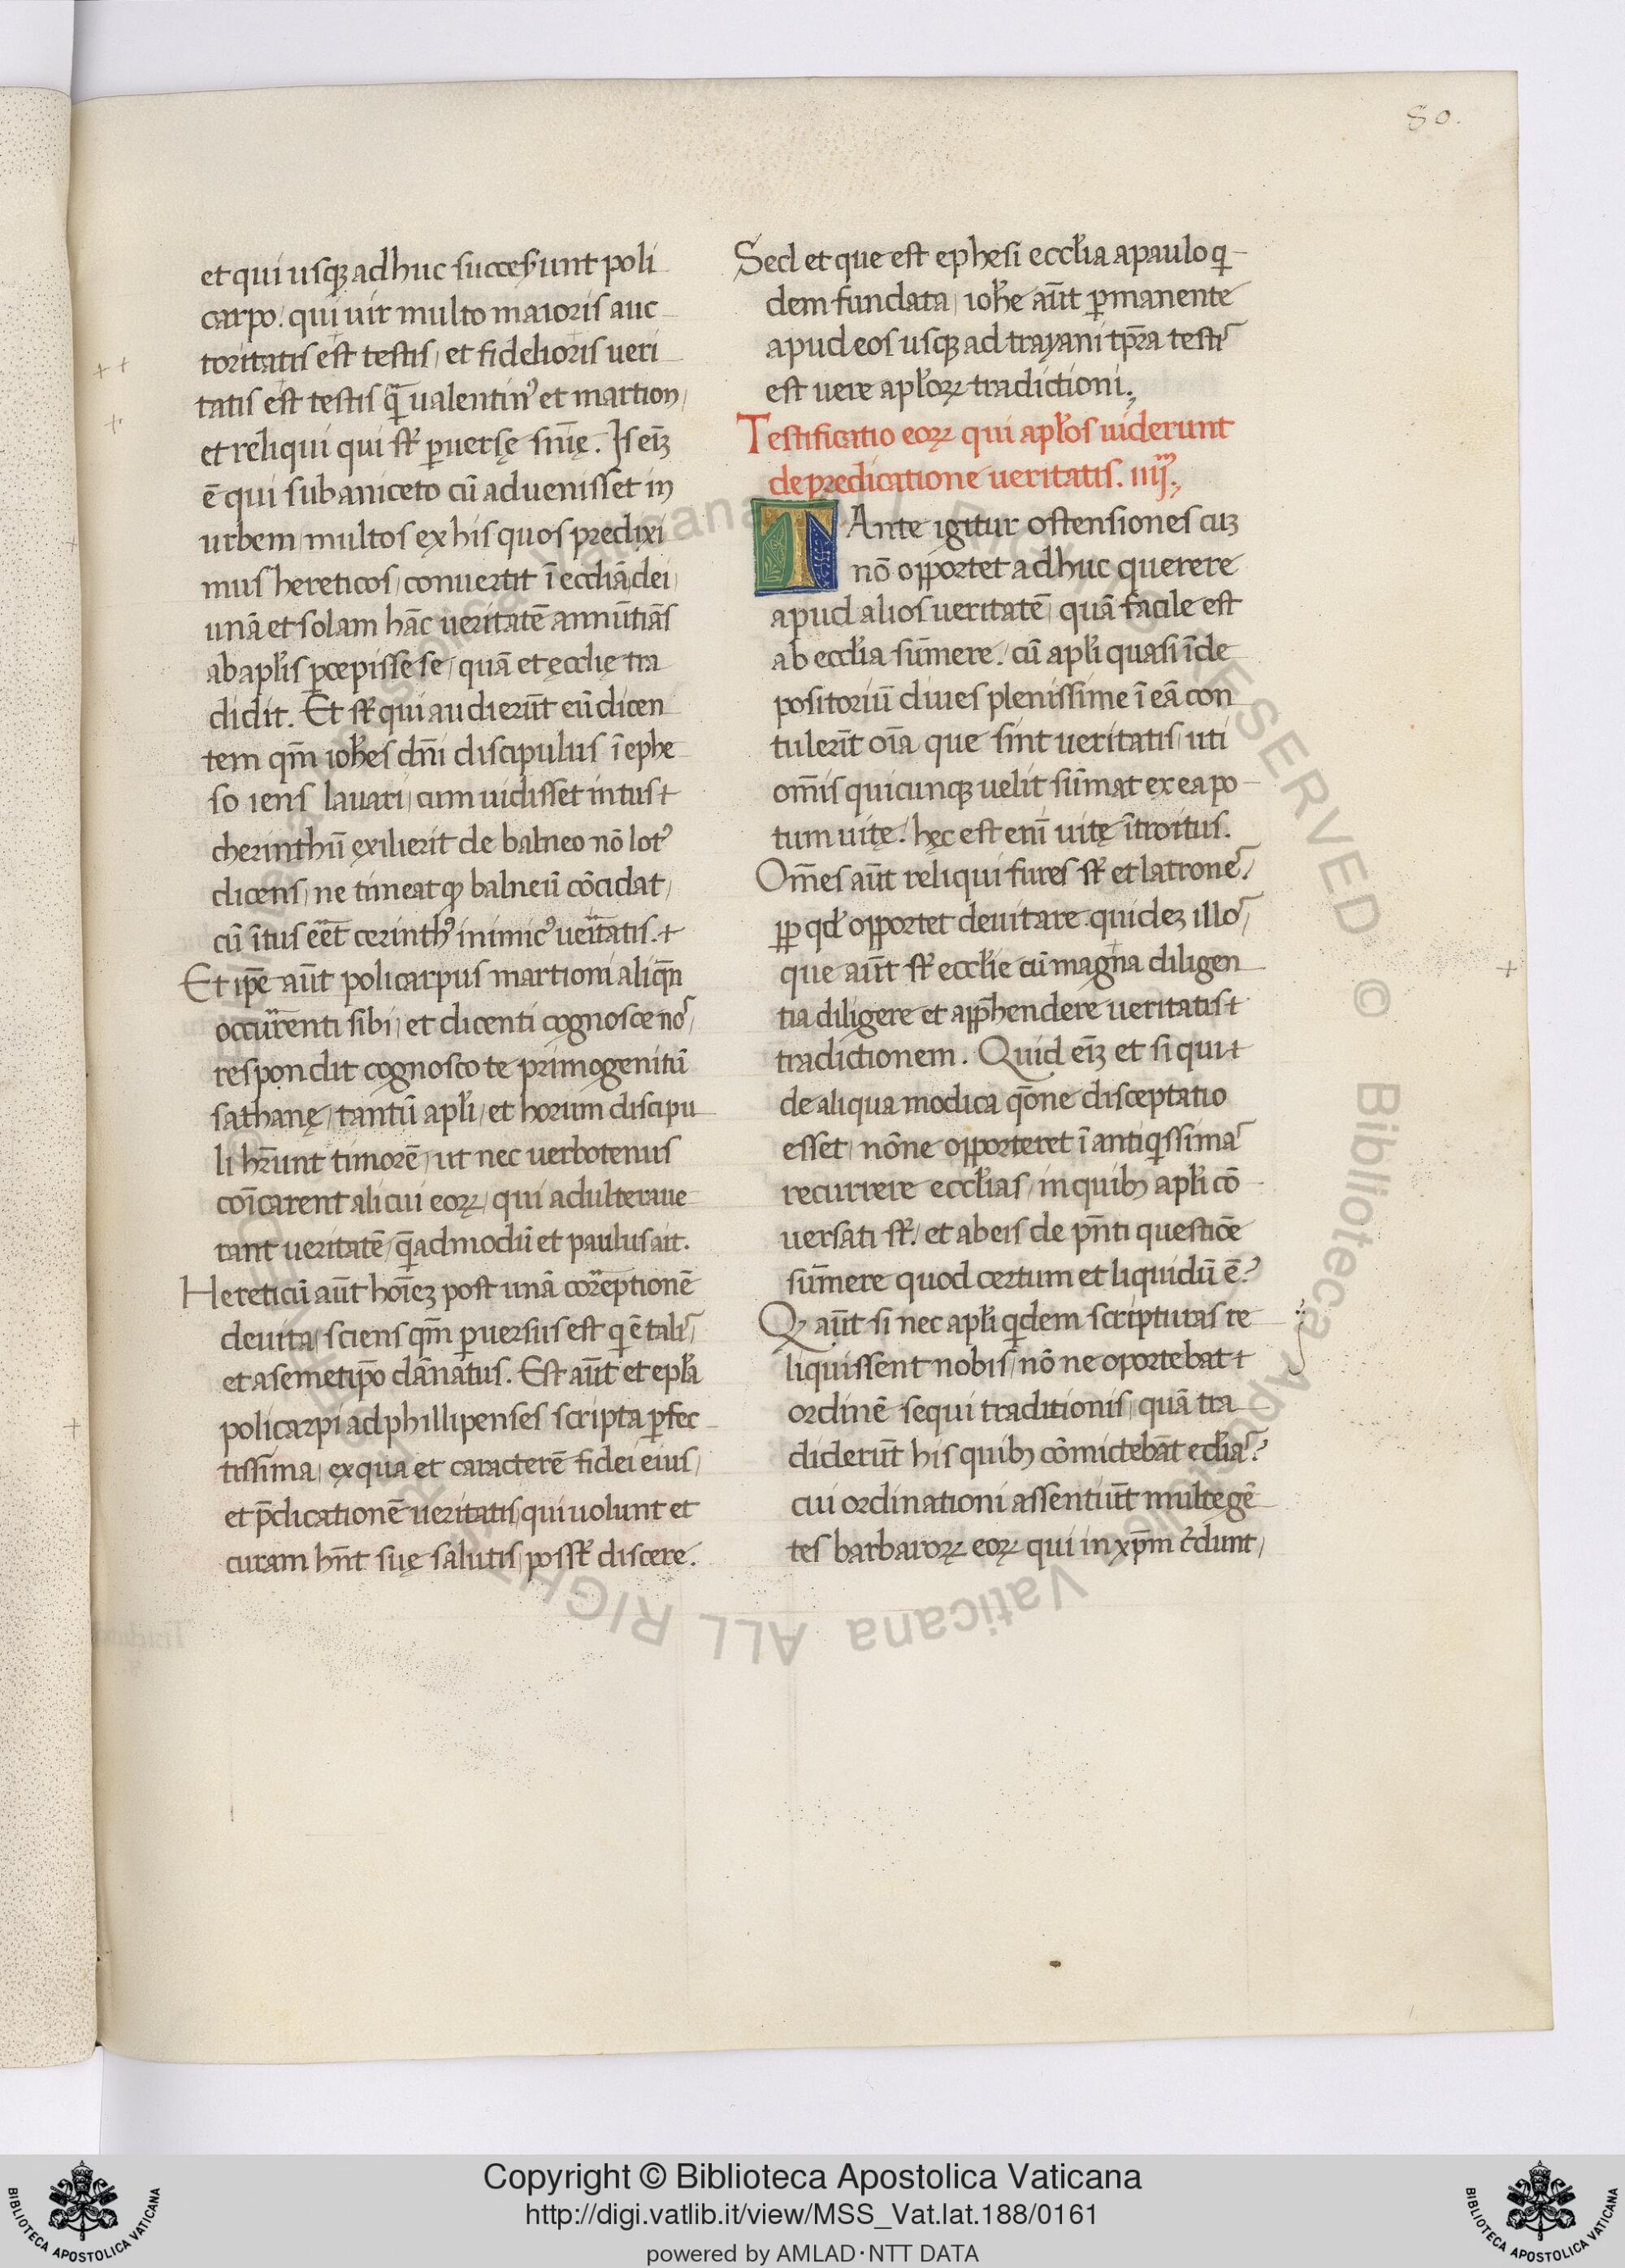 80.
et qui usqꝫ adhuc successerunt poli
carpo. qui vir multo maioris auc
toritatis est testis, et fidelioris ueri
tatis est testis qᷓ ualentinꝰ et martion,
et reliqui qui st̃ ꝑuersę sñię. Is eiꝫ
ē qui sub aniceto cū aduenisset in
urbem, multos ex his quos predixi
mus hereticos, conuertit ī eccliā dei,
unā et solam hāc ueritatē annūtiās
ab apl̃is ꝑcepisse se, quā et ecclie tra
didit. Et st̃ qui audierūt eū dicen
tem qm̃ ioh̃es dñi discipulus ī ephe
so iens lauari, cum uidisset intus
cherinthū exilierit de balneo nō lotꝰ
dicens, ne timeat qꝫ balneū cōcidat,
cū ītus eēt cerinthꝰ inimicꝰ ueritatis.
Et ip̃e aūt policarpus martioni aliqñ
occurrenti sibi, et dicenti cognosce nos,
respondit cognosco te primogenitū
sathanę, tantū apl̃i, et horum discipu
li hr̃unt timorē, ut nec uerbotenus
coīcarent alicui eoꝝ, qui adulteraue
rant ueritatē, qᷓadmodū et paulus ait.
Hereticū aūt hoīeꝫ post unā correptionē
deuita, sciens qm̃ ꝑuersus est qͥ ē talis,
et a semetip̃o dānatus. Est aūt et epl̃a
policarpi ad phillipenses scripta ꝑfec
tissima, ex qua et caracterē fidei eius,
et p̃dicationē ueritatis, qui uolunt et
curam hñt suę salutis, posst̃ discere.
Sed et que est ephesi eccl̃ia a paulo qͥ
dem fundata, ioh̃e aūt ꝑmanente
apud eos usqꝫ ad trayani tp̃ra testis
est uere apl̃oꝝ tradictioni.,
Testificatio eoꝝ qui apl̃os uiderunt
de predicatione ueritatis. iiij.,
TAnte igitur ostensiones cuꝫ
nō opportet adhuc querere
apud alios ueritatē, quā facile est
ab eccl̃ia sūmere. cū apl̃i quasi ī de
positoriū diues plenissime ī eā con
tulerūt oīa que sint ueritatis, uti
om̃is quicunqꝫ uelit sūmat ex ea po
tum uitę. hęc est enī uitę ītroitus.
Om̃es aūt reliqui fures st̃ et latrones,
ꝓp qđ opportet deuitare quideꝫ illos,
que aūt st̃ eccl̃ie cū magna diligen
tia diligere et app̃hendere ueritatis
tradictionem. Quid eiꝫ et si qui
de aliqua modica qōne disceptatio
esset, nōne opporteret ī antiqͥssimas
recurrere eccl̃ias, in quibꝫ apl̃i cō
uersati st̃, et ab eis de pñti questiōe
sūmere quod certum et liquidū ē?
Qꝫ aūt si nec apl̃i qͥdem scripturas re
liquissent nobis, nō ne oportebat
ordinē sequi traditionis, quā tra
diderūt his quibꝫ cōmictebāt ecl̃ias?
cui ordinationi assentiūt multe gē
tes barbaroꝝ eoꝝ qui in xp̃m c̃dunt,
Copyright © Biblioteca Apostolica Vaticana
http://digi.vatlib.it/view/MSS_Vat.lat.188/0161
powered by AMLAD·NTT DATA